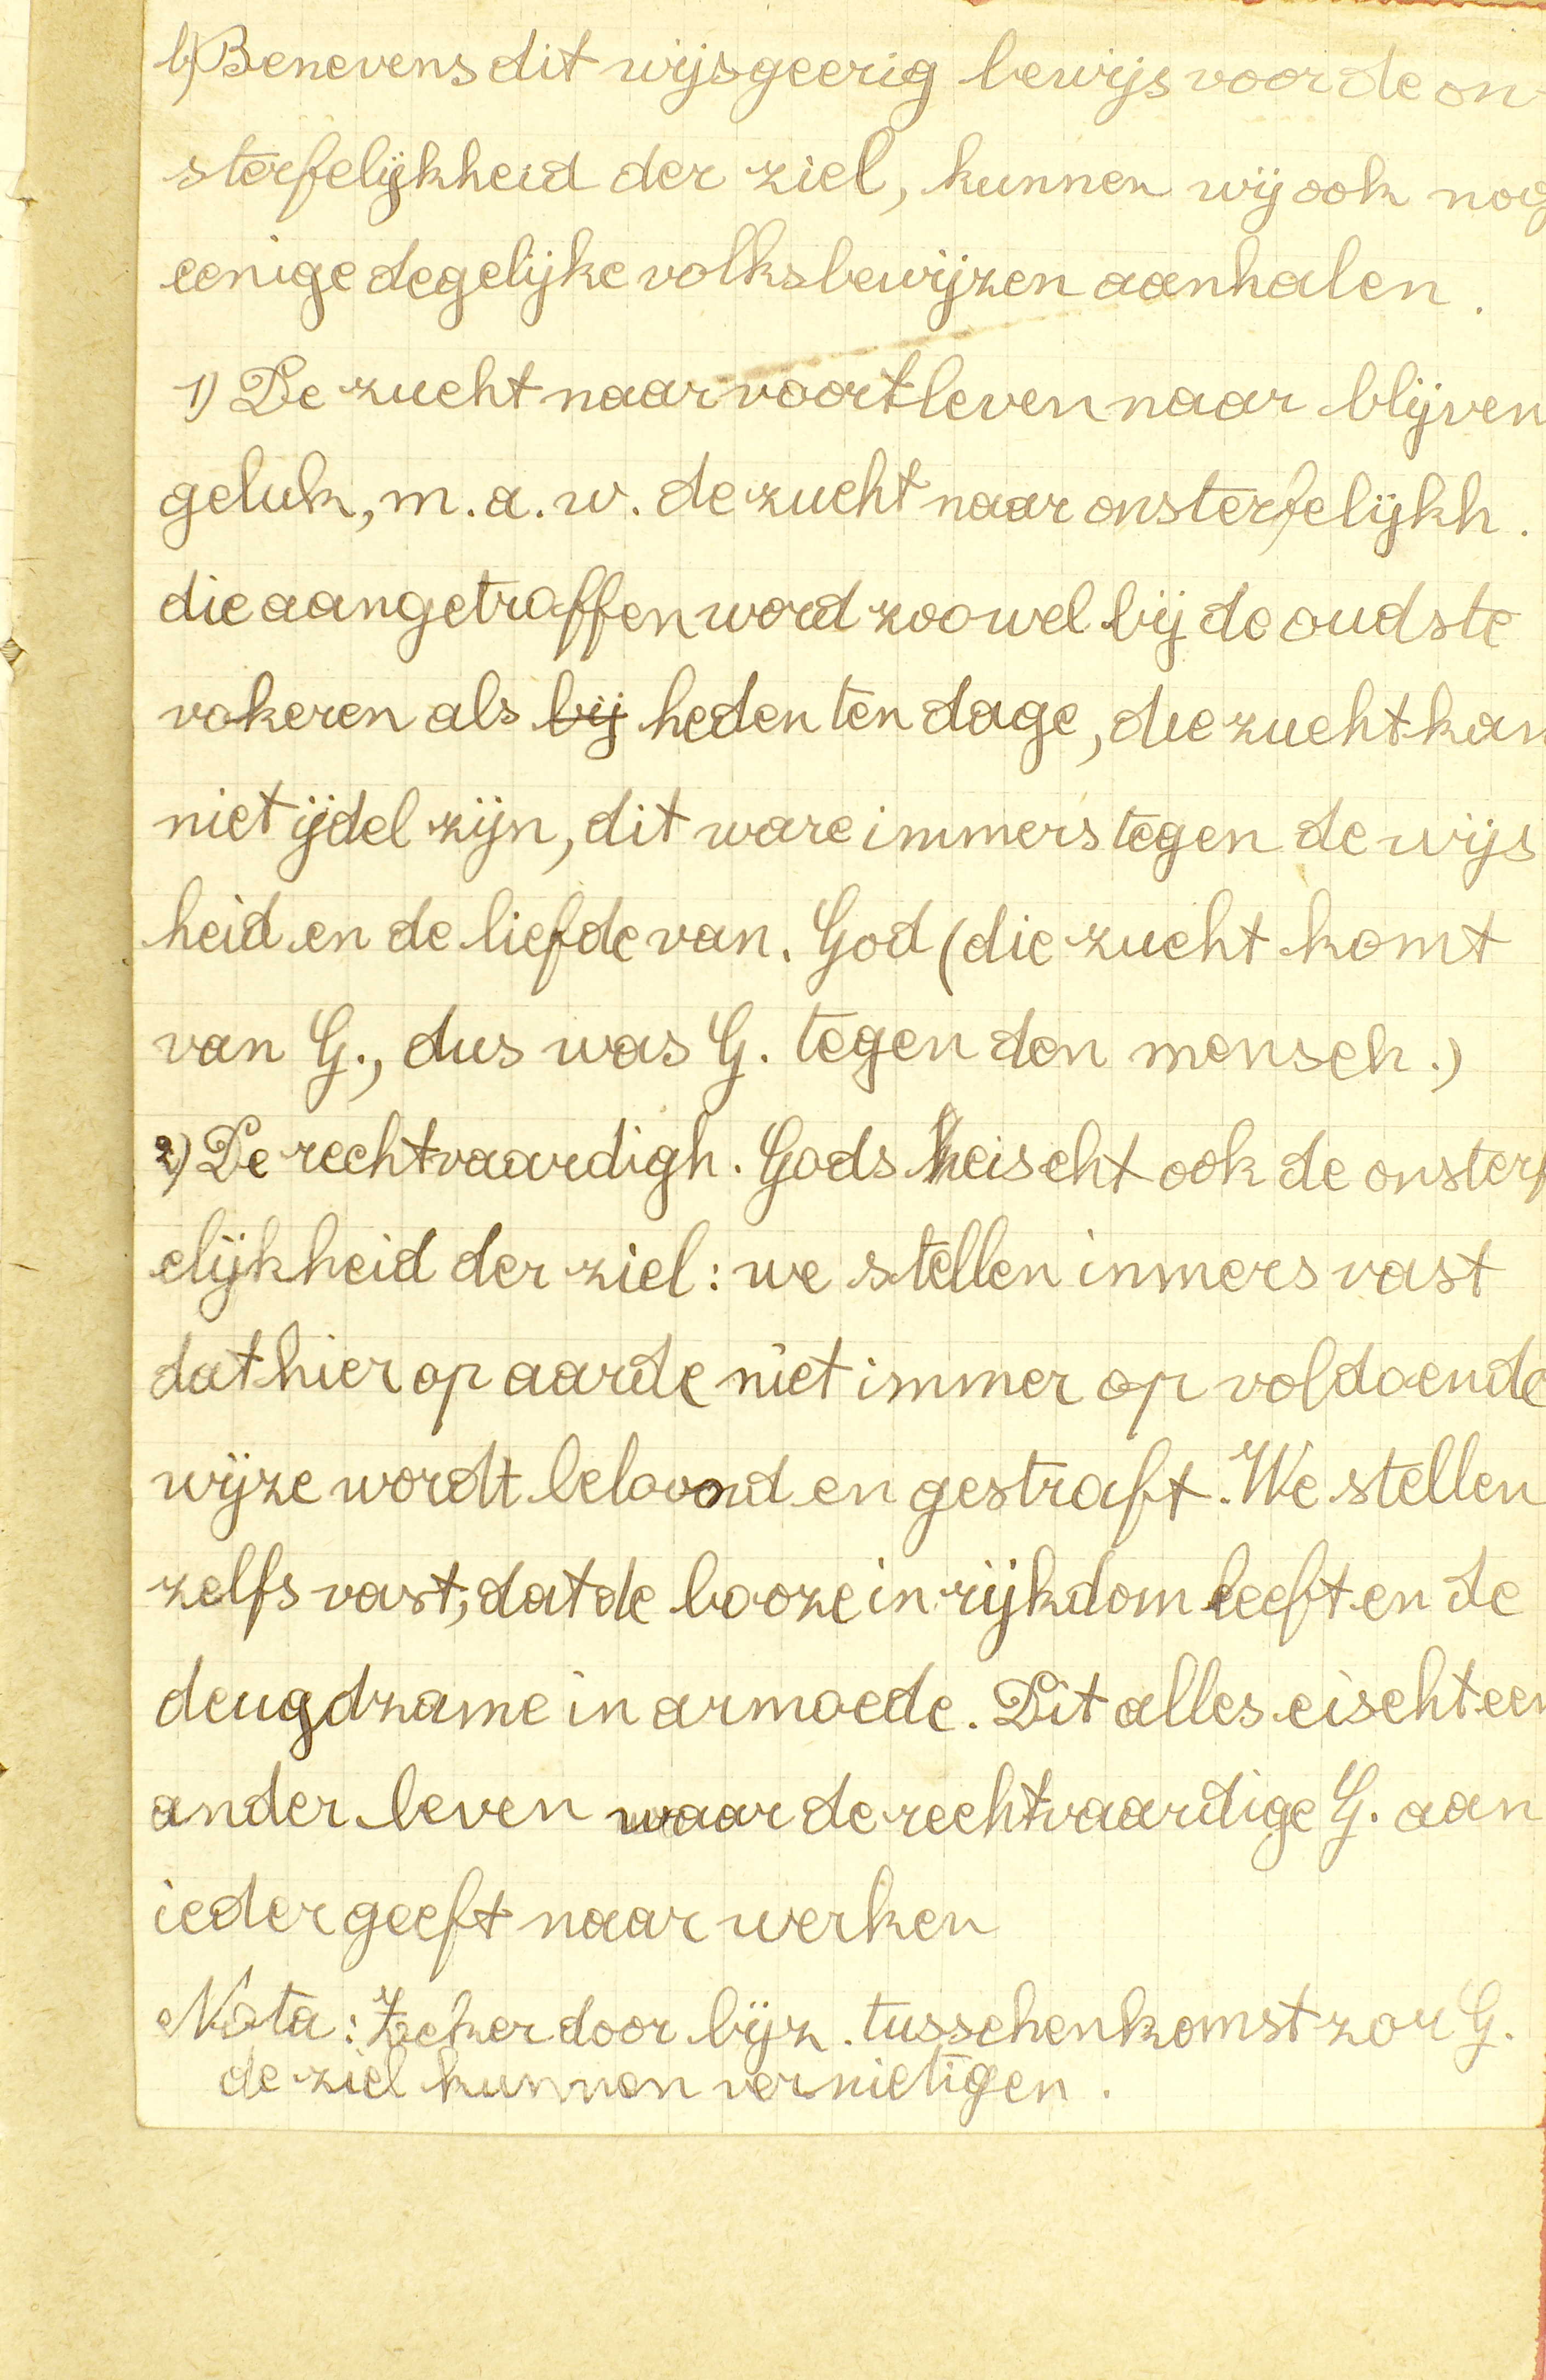 b) Benevens dit wijsgeerig bewijs voor de on-
sterfelijkheid der ziel, kunnen wij ook nog
eenige degelijke volksbewijzen aanhalen.
1) De zucht naar voortleven naar blijven
geluk, m.a.w. de zucht naar onsterfelijkh.
die aangetroffen word zoowel bij de oudste
vokeren als bij heden ten dage, die zucht kan
niet ijdel zijn, dit ware immers tegen de wijs
heid en de liefde van. God (die zucht komt
van G., dus was G. tegen den mensch.)
2) De rechtvaardigh. Gods heischt ook de onsterf
elijkheid der ziel: we stellen inmers vast
dat hier op aarde niet immer op voldoende
wijze wordt beloond en gestraft. We stellen
zelfs vast, dat de booze in rijkdom leeft en de
deugdzame in armoede. Dit alles eischt een
ander leven waar de rechtvaardige G. aan
ieder geeft naar werken
Nota: Zeker door bijz. tusschenkomst zou G.
de ziel kunnen vernietigen.